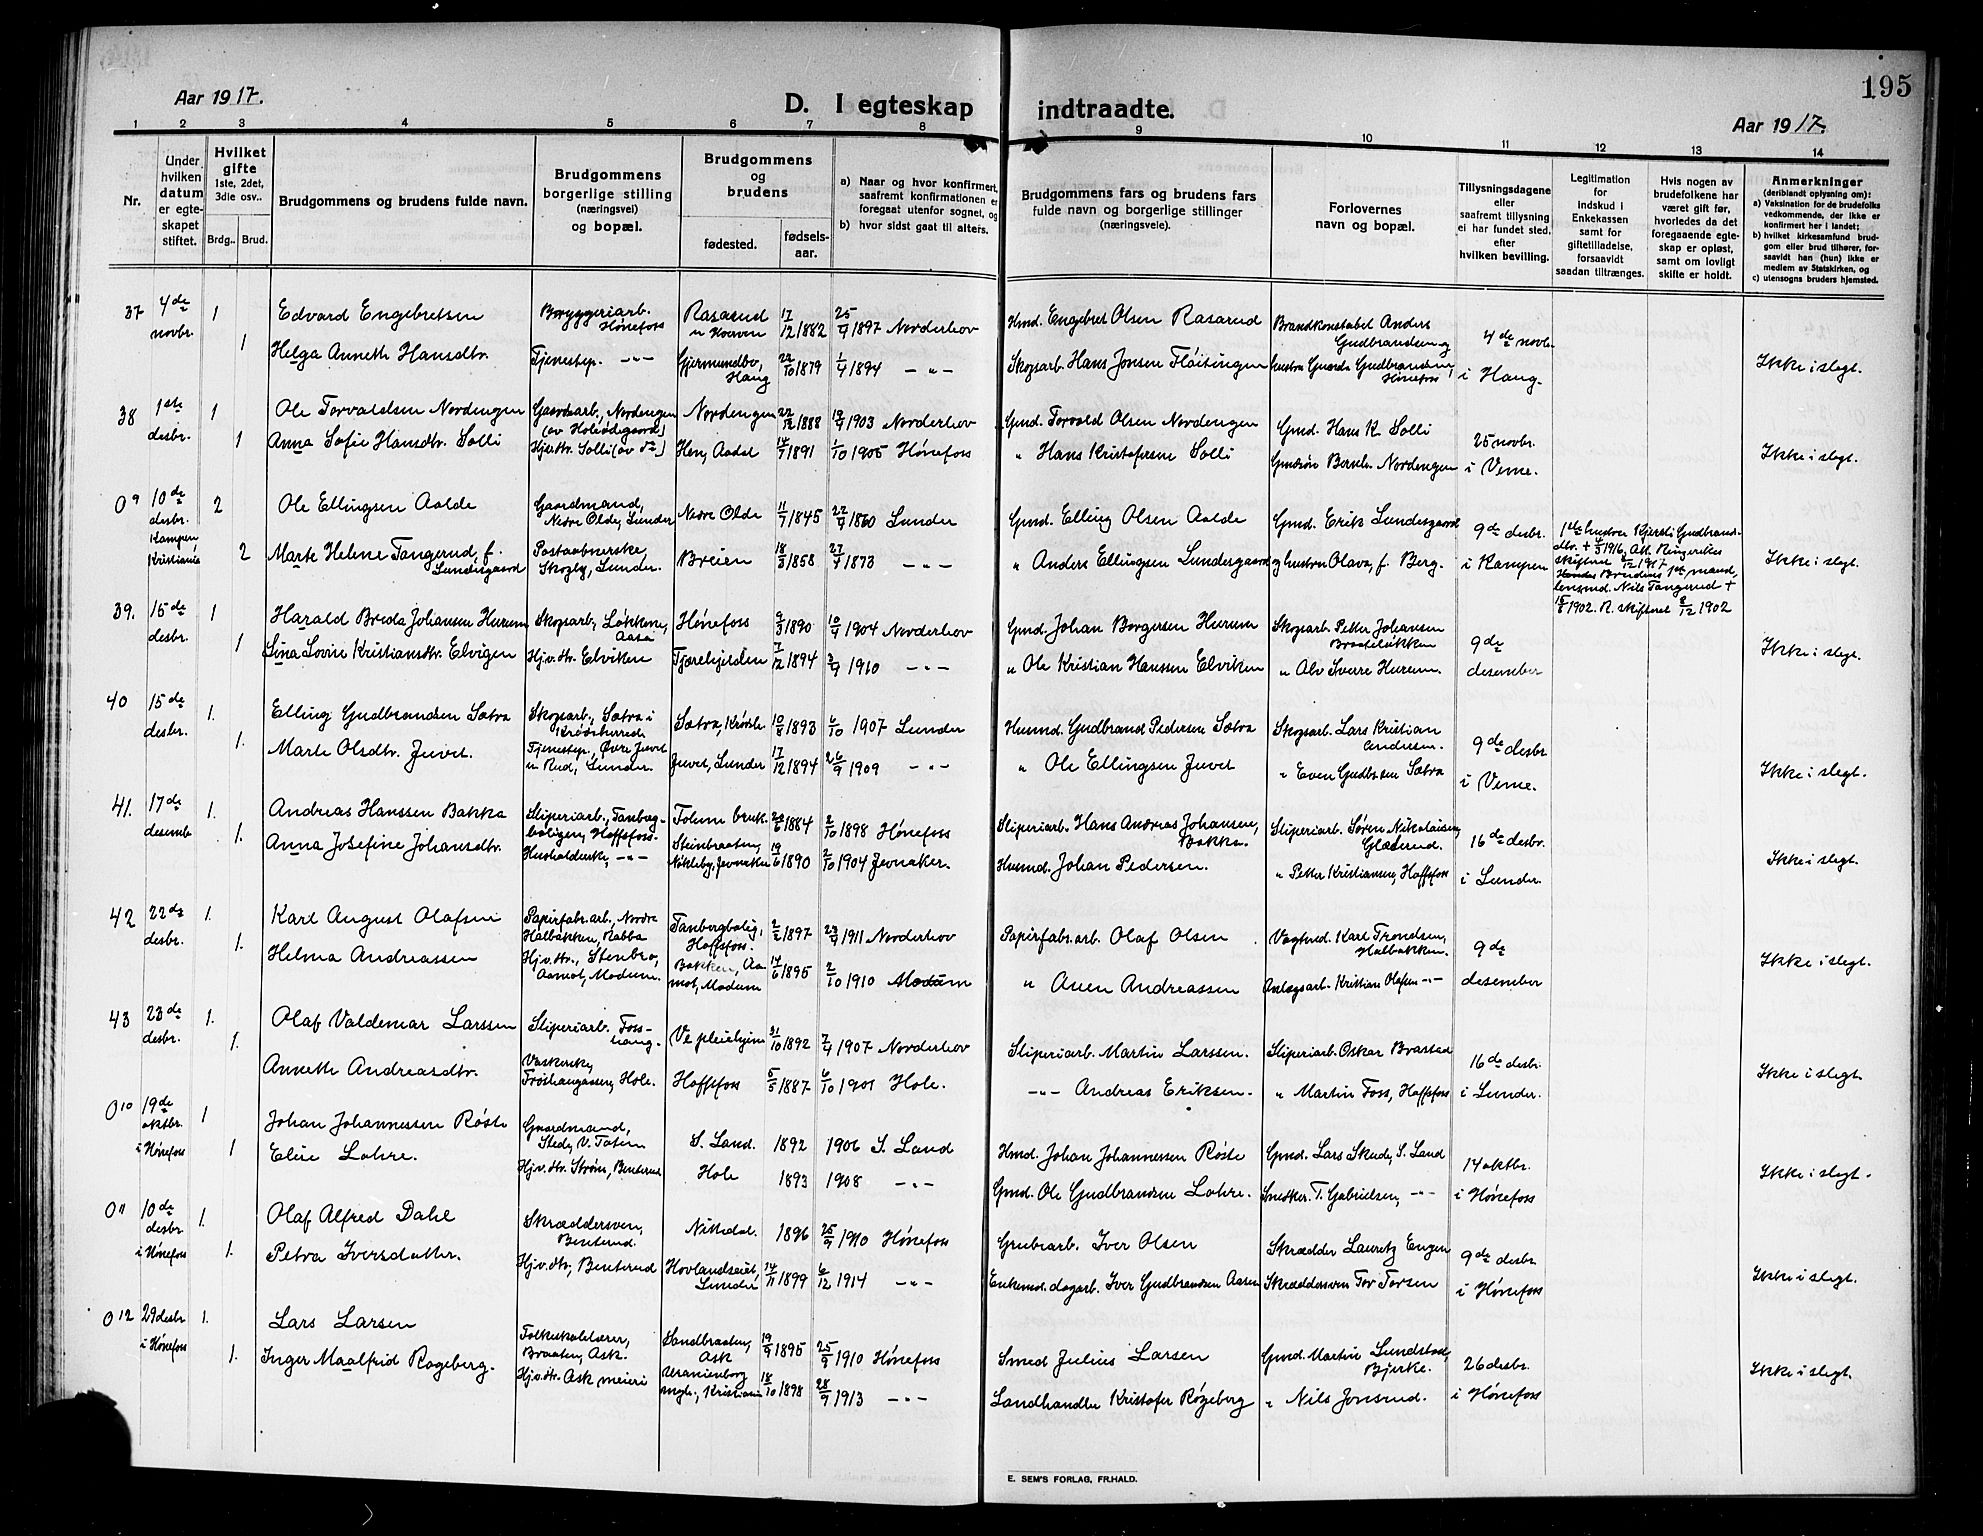 195
Aar 1917.
D. I egteskap indtraadte.
Aar 1917.
1 2 3 4 5 6 7 8 9 10 11 12 13 14
Nr.
Under hvilken datum er egteskapet stiftet.
Hvilket gifte 1ste, 2det, 3die osv..
Brdg.. Brud.
Brudgommens og brudens fulde navn.
Brudgommens borgerlige stilling (næringsvei) og bopæl.
Brudgommens og brudens
fødested. fødselsaar.
a) Naar og hvor konfirmert, saafremt konfirmationen er foregaat utenfor sognet, og
b) hvor sidst gaat til alters.
Brudgommens fars og brudens fars fulde navn og borgerlige stillinger (næringsveie).
Forlovernes navn og bopæl.
Tillysningsdagene eller saafremt tillysning ei har fundet sted, efter hvilken bevilling.
Legitimation for indskud i Enkekassen samt for giftetilladelse, forsaavidt saadan tiltrænges.
Hvis nogen av brudefolkene har været gift før, hvorledes da det foregaaende egteskap er opløst, samt om lovligt skifte er holdt.
Anmerkninger (deriblandt oplysning om):
a) Vaksination for de brudefolks vedkommende, der ikke er konfirmert her i landet;
b) hvilket kirkesamfund brudgom eller brud tilhører, forsaavidt han (hun) ikke er medlem av Statskirken, og
c) utensogns bruders hjemsted.
37 4de novbr. 1 Edvard Engebretsen Bryggeriarb. Hønefoss Rasarud 17/12 1882 25/9 1897 Norderhov Hmd. Engebret Olsen Rasarud Brandkonstabel Anders Gudbrandsen og 4de novbr.
1 Helga Anneth Hansdtr. Tjenestep. -"- Gjermundbo, Haug 22/10 1879 1/4 1894 -"- Skogsarb. Hans Jonsen Fløitingen hustru Gudbrandsen, Hønefoss i Haug. Ikke i slegt.
38 1ste desbr. 1 Ole Torvaldsen Nordengen Gaardsarb., Nordengen Nordengen 22/12 1888 1903 Norderhov Gmd. Torvald Olsen Nordengen Gmd. Hans K. Solli 25 novbr.
1 Anna Sofie Hansdtr. Solli Hjv.dtr. Solli Hen, Aadal 14/7 1891 1/10 1905 Hønefoss " Hans Kristofersen Solli Gmdsøn Bernh. Nordengen i Veme. Ikke i slegt.
09 10de desbr. Kampen Kristiania 2 Ole Ellingsen Aalde Gaardmand, Nedre Olde, Lunder Nedre Olde 11/7 1845 22/9 1860 Lunder Gmd. Elling Olsen Aalde Gmd. Erik Lundesgaard 9de desbr.
2 Marte Helene Tangerud, f. Lundesgaard Postaabnerske, Skogly, Lunder. Breien 18/3 1858 27/7 1873 -"- " Anders Ellingsen Lundesgaard og hustru Olava, f. Berg. i Kampen Ikke i slegt.
1ste hustru Kjersti Gudbrandsdtr. + 1916, Att. Ringerikes skifteret 8/12 1917
Brudens 1ste mand, lensmd. Nils Tangerud + 15/8 1902. R. skifteret 8/12 1902
39. 15de desbr. 1 Harald Breda Johansen Hurum Skogsarb., Løkkene, Aasa Hønefoss 9/3 1890 10/4 1904 Norderhov Gmd. Johan Borgersen Hurum Skogsarb. Petter Johansen 9de
1 Lina Lovise Kristiansdtr. Elvigen Hjv.dtr. Elviken Tjærehjelden 7/12 1894 1910 -"- " Ole Kristian Hanssen Elviken " Alv Sverre Hurum. desember Ikke i slegt.
40 15de desbr. 1. Elling Gudbrandsen Sætra Skogsarb., Sætra i Krødsherred Sætra, Krødsh. 10/8 1893 6/10 1907 Lunder Husmd. Gudbrand Pedersen Sætra Skogsarb. Lars Kristian Andersen. 9de desbr
1. Marte Olsdtr. Juvet. Tjenestep., Øvre Juvet Rud, Lunder. Juvet, Lunder 17/12 1894 26/9 1909 -"- " Ole Ellingsen Juvet " Even Gudbrsen Sætra i Veme. Ikke i slegt.
41. 17de desemb. 1. Andreas Hanssen Bakka Sliperiarb., Tanbergboligen, Hoffsfoss. Follum bruk 20/6 1884 2/10 1898 Hønefoss Sliperiarb. Hans Andreas Johansen, Bakka. Sliperiarb. Søren Nikolaisen, Glæserud. 16de desbr.
1. Anna Josefine Johansdtr. Husholderske, -"- Steinbraaten, Nikleby, Jevnaker 19/6 1890 2/10 1904 Jevnaker. Husmd. Johan Pedersen. " Petter Kristiansen, Hoffsfoss i Lunder. Ikke i slegt.
42 22de desbr. 1. Karl August Olafsen Papirfabr.arb., Nordre Halbakken, Rabba Tanbergbolig, Hoffsfoss. 2/2 1897 24/9 1911 Norderhov Papirfabr.arb. Olaf Olsen Vogtned. Karl Trondsen, Halbakken. 9de
1. Helma Andreassen Hjv.dtr., Stenbro, Aamot, Modum. Bakken, Aamot, Modum 14/6 1895 2/10 1910 Modum " Auen Andreassen Anlægsarb. Kristian Olafsen -"- desember Ikke i slegt.
43 23de desbr. 1. Olaf Valdemar Larssen Sliperiarb. Fosshaug. Ve pleiehjem 31/10 1892 7/4 1907 Norderhov Sliperiarb. Martin Larssen. Sliperiarb. Oskar Brastad 16de desbr.
1. Anneth Andreasdtr. Vaskerske, Frøshaugassen, Hole. Hoffsfoss 5/5 1887 6/10 1901 Hole. -"- Andreas Eriksen. " Martin Foss, Hoffsfoss i Lunder. Ikke i slegt.
010 19de oktbr. i Hønefoss 1 Johan Johannessen Røste Gaardmand, Sted, V. Toten S. Land. 1892 1906 S. Land Hmd. Johan Johannessen Røste Gmd. Lars Skude, S. Land 14 oktbr.
1 Eline Lohre. Hjv.dtr. Strøm, Benterud Hole 1893 1908 -"- Gmd. Ole Gudbrandsen Lohre. Snedker. T. Gabrielsen, -"- i Hønefoss Ikke i slegt.
011 10de desbr i Hønefoss 1. Olaf Alfred Dahl Skræddersven, Benterud. Nittedal. 1896 25/9 1910 Hønefoss Grubearb. Iver Olsen Skrædder Lauretz Engen 9de desbr.
1. Petra Iversdatter. Hjv.dtr, Benterud Hovlandseiet, Lunder 14/11 1899 6/12 1914 -"- Enkemd. dagarb. Iver Gudbrandsen Aasen Skræddersven Tor Torsen i Hønefoss Ikke i slegt.
012 29 desbr i Hønefoss 1. Lars Larsen Folkeskolelærer, Braaten, Ask. Sandbraaten, Ask 19/9 1895 25/9 1910 Hønefoss Smed Julius Larsen Gmd. Martin Lundstad, Bjerke. 26 desbr.
1. Inger Maalfrid Røgeberg. Hjv.dtr. Ask meieri Uranienborg mgh., Kristiania 18/10 1898 28/9 1913 -"- Landhandler Kristofer Røgeberg " Nils Jonsrud. i Hønefoss Ikke i slegt.
E. SEM'S FORLAG, FR.HALD.